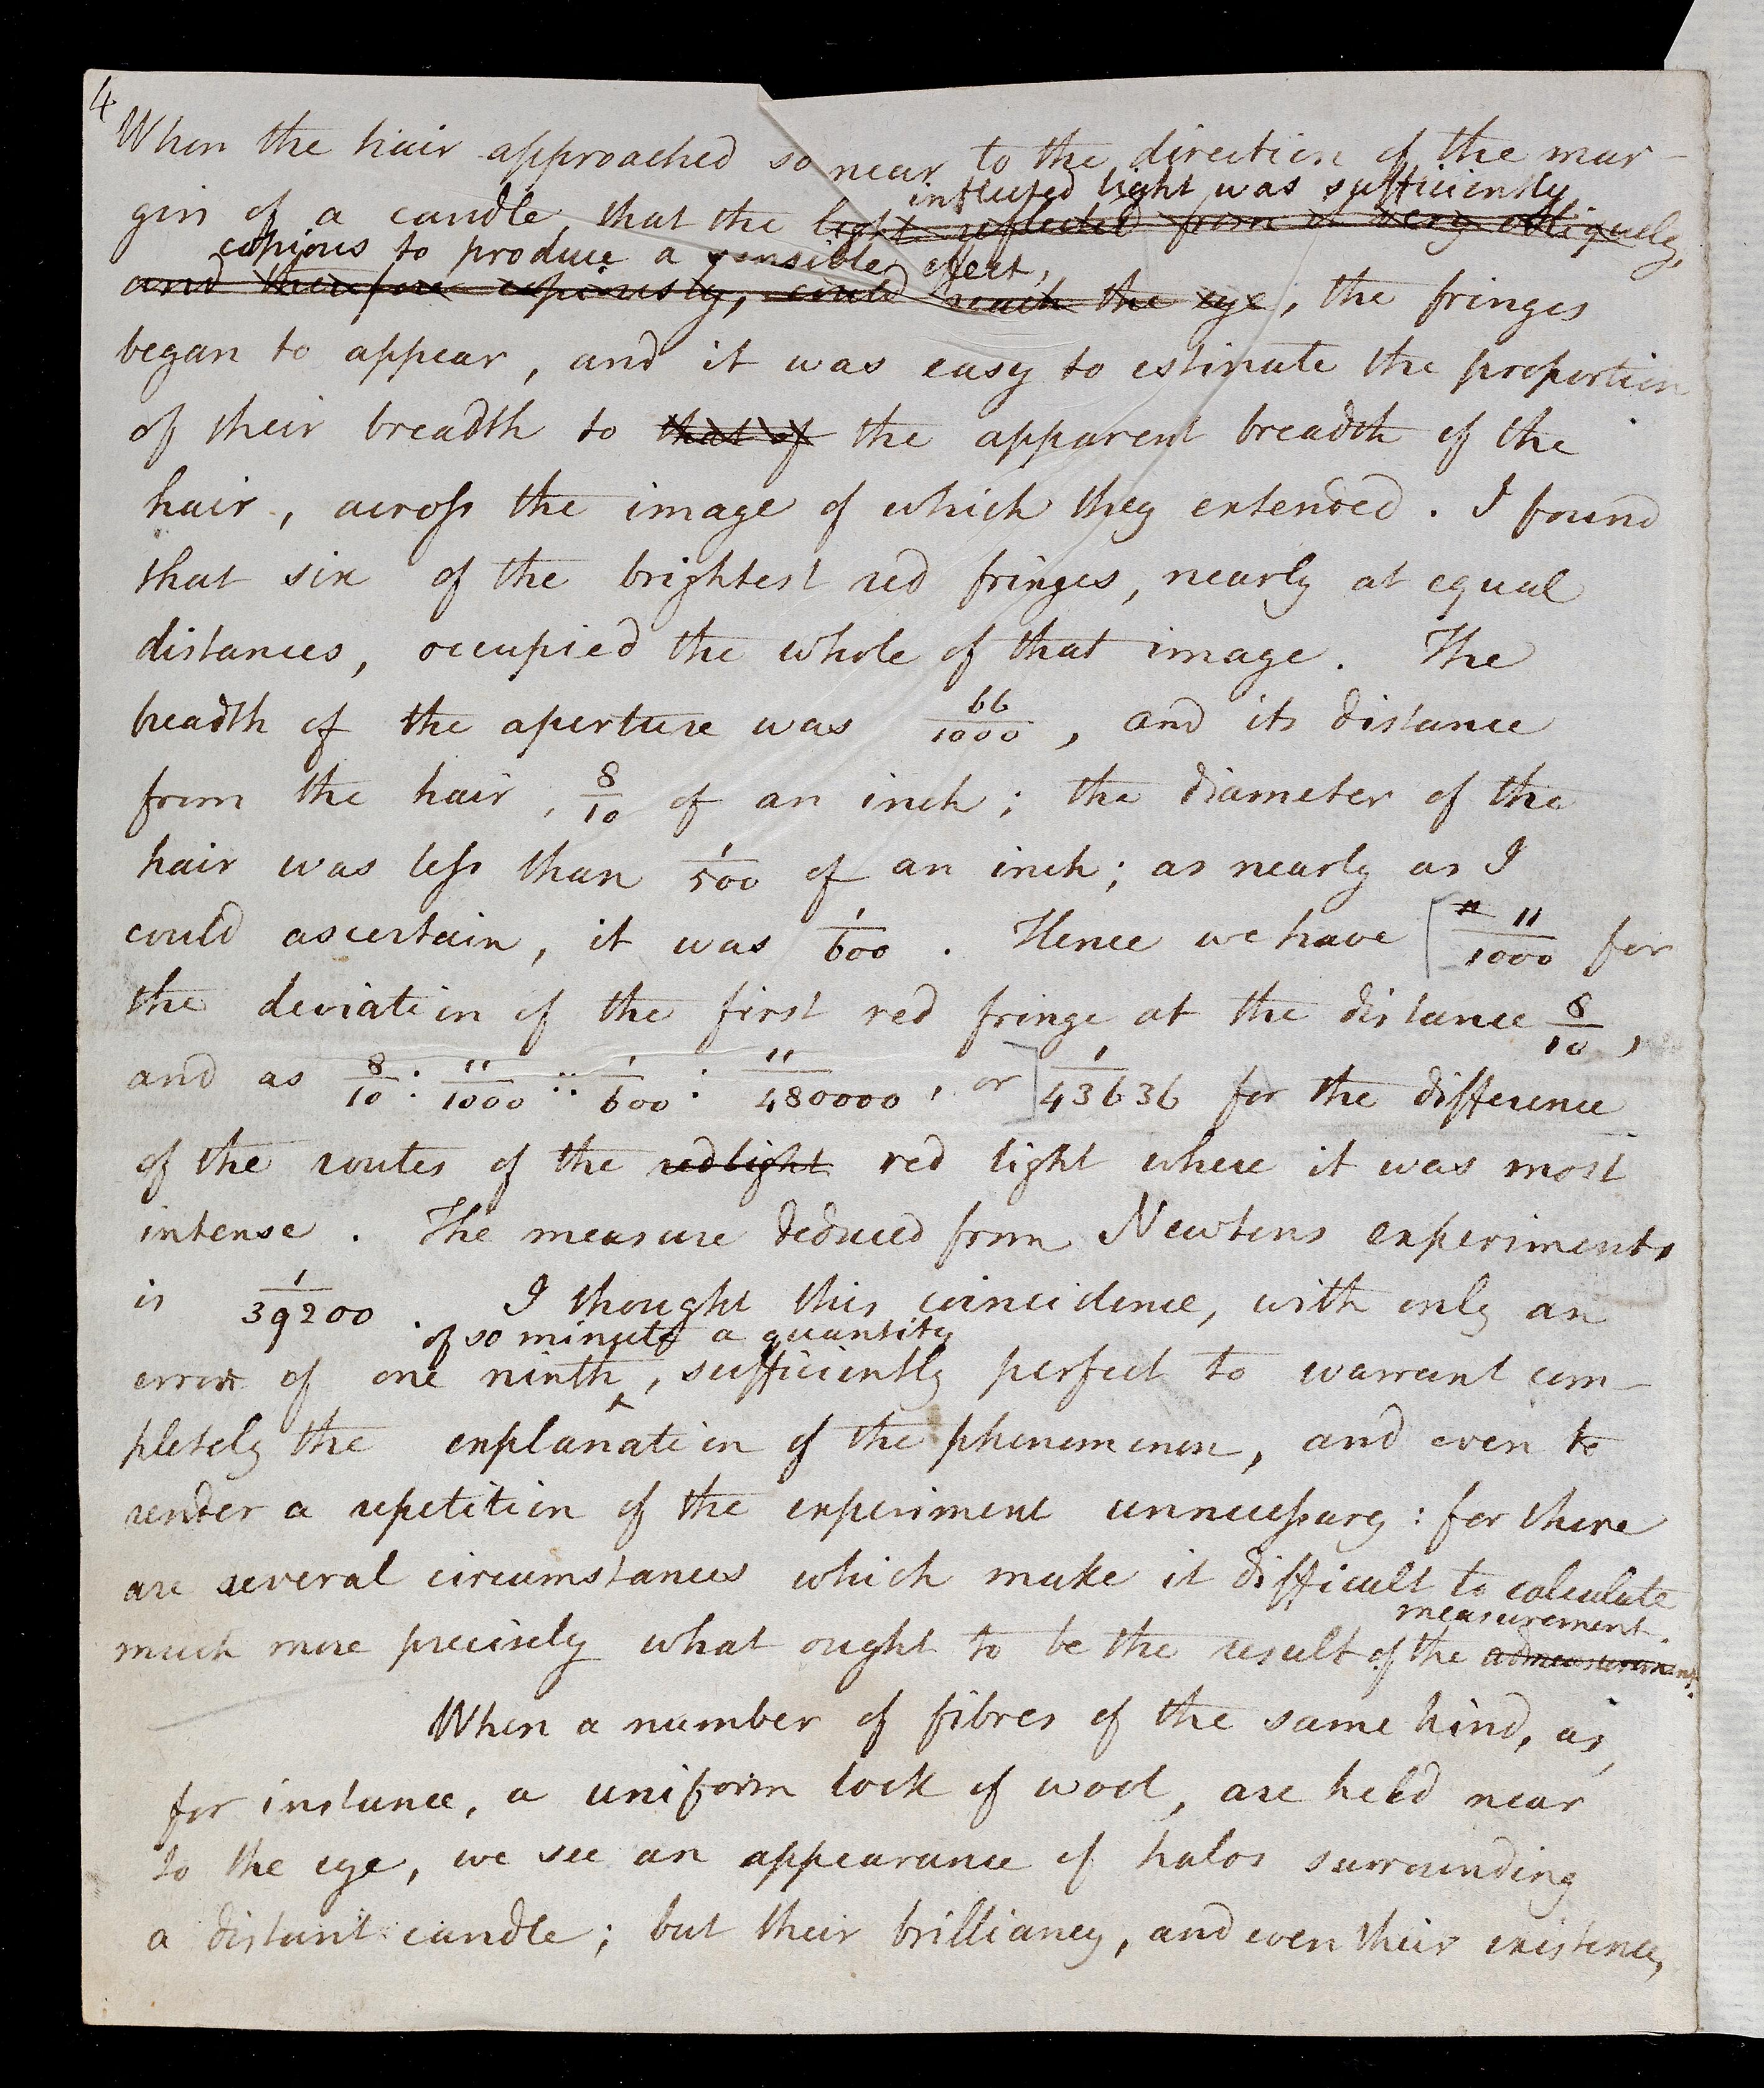 4
When the hair approached so near to the direction of the mar-
inflected light was sufficiently
gin of a candle that the light reflected from it very obliquely,
copious to produce a sensible effect,
and therefore copiously, could reach the eye, the fringes
began to appear, and it was easy to estimate the proportion
of their breadth to that of the apparent breadth of the
hair, across the image of which they extended. I found
that six of the brightest red fringes, nearly at equal
distances, occupied the whole of that image. The
breadth of the aperture was 66/1000, and its distance
from the hair, 8/10 of an inch; the diameter of the
hair was less than 1/500 of an inch; as nearly as I
could ascertain, it was 1/600. Hence we have [11/1000 for
the deviation of the first red fringe at the distance 8/10,
and as 8/10 : 11/1000 :: 1/600 : 11/480000, or ]1/43636 for the difference
of the routes of the red light red light where it was most
intense. The measure deduced from Newtons experiments
is 1/39200. I thought this coincidence, with only an
of so minute a quantity
error of one ninth ^, sufficiently perfect to warrant com-
pletely the explanation of the phenomenon, and even to
render a repetition of the experiment unnecessary: for there
are several circumstances which make it difficult to calculate
measurement.
much more precisely what ought to be the result of the admeasurement.
When a number of fibres of the same kind, as,
for instance, a uniform lock of wool, are held near
to the eye, we see an appearance of halos surrounding
a distant candle; but their brilliancy, and even their existence,